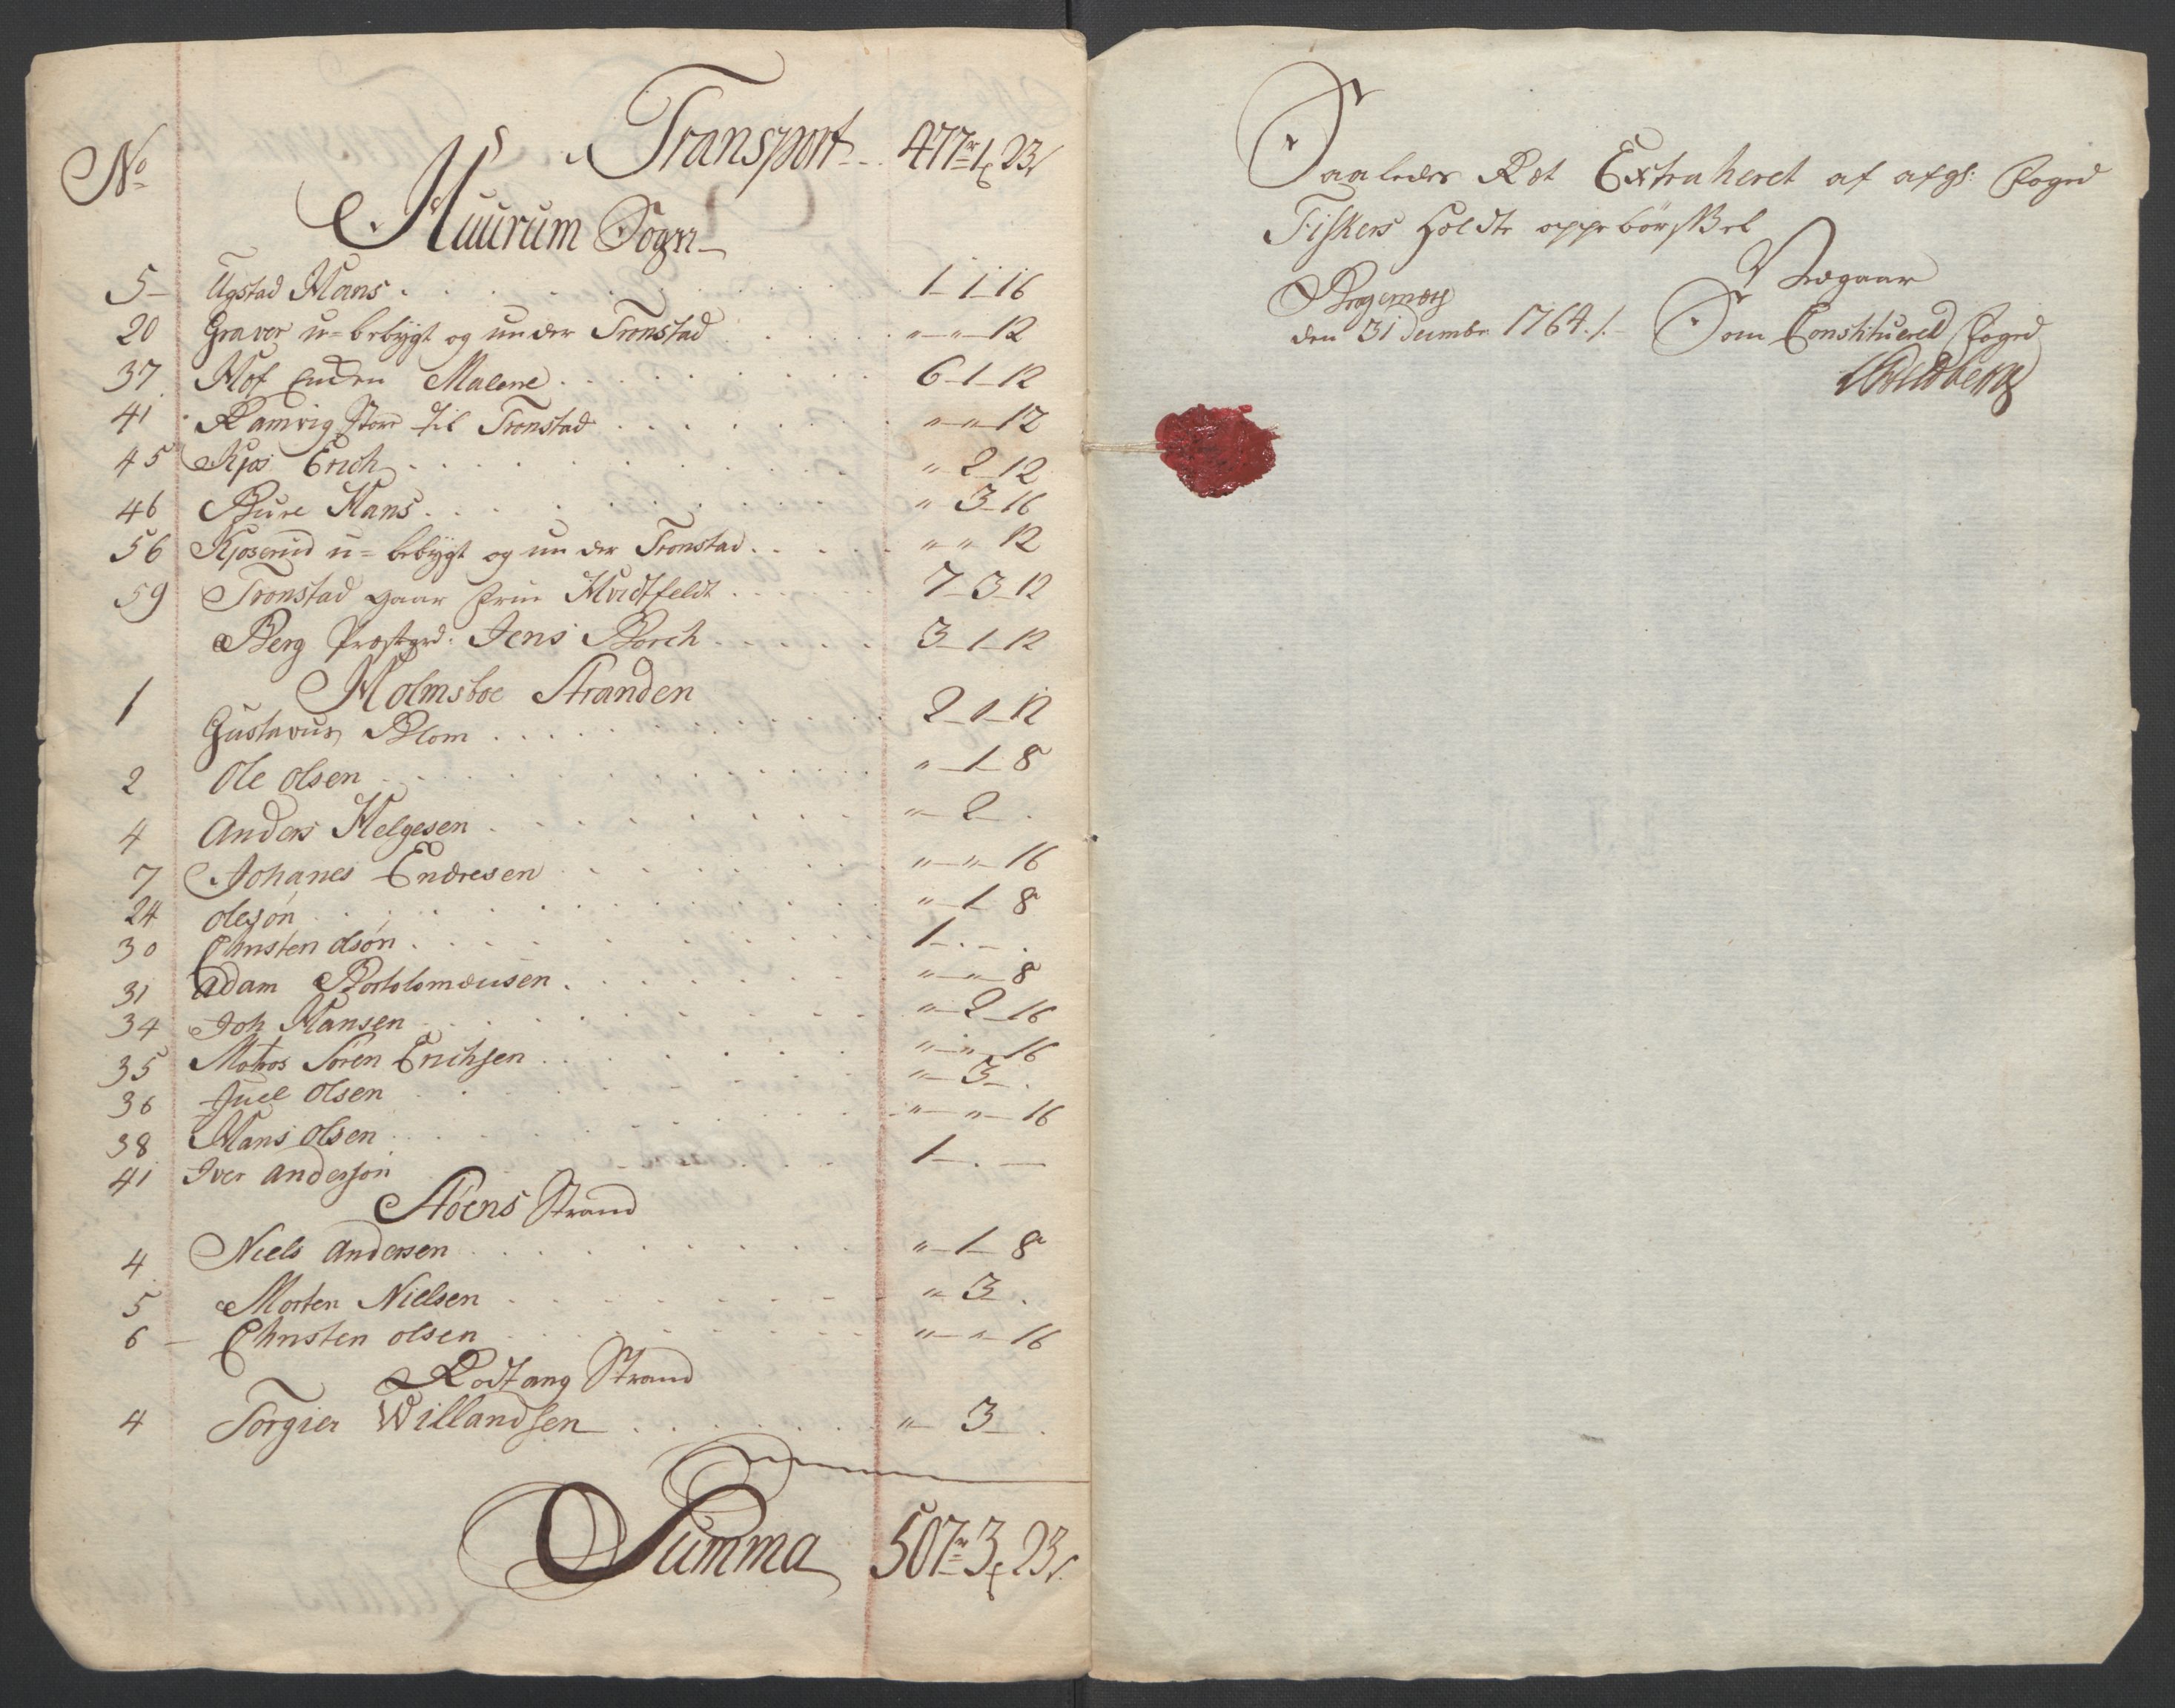 No Transport 477 1 23
Huurum Sogn
5 Ugstad Hans 1 1 16
20 Graver u=bebygt og under Tronstad " " 12
37 Hof Enken Malene 6 1 12
41 Ramvig Store til Tronstad " " 12
45 Kjos Erich " 2 12
46 Bure Hans " 3 16
56 Kjoserud u=bebygt og under Tronstad " " 12
59 Tronstad gaar frue Hvidtfeldt 7 3 12
Berg Præstgrd. Jens Borch 3 1 12
Holmsboe Stranden
1 Gustavus Blom 2 1 12
2 Ole Olsen " 1 8
4 Anders Helgesen " 2 .
7 Johanes Endresen " " 16
24 Ole Jon " 1 8
30 Christen Olsøn 1 . .
31 Adam Bortolomæusen " " 8
34 Joh Hansen " 2 16
35 Matros Søren Erichsen " " 16
36 Juel Olsen " 3 .
38 Hans Olsen " " 16
41 Iver Andersøn 1 . —
Støens Strand
4 Niels Andersen " 1 8
5 Morten Nielsen " 3 .
6 Christen Olsen " " 16
Rødtang Strand
4 Torgier Willandsen " 3 .
Summa 507 3 23
Saaledes Ret Extraheret af afgl: Foged
Fiskers Holdte oppebørsel
Bragernæs
den 31 decembr 1764 ./. Som Constituered Foged